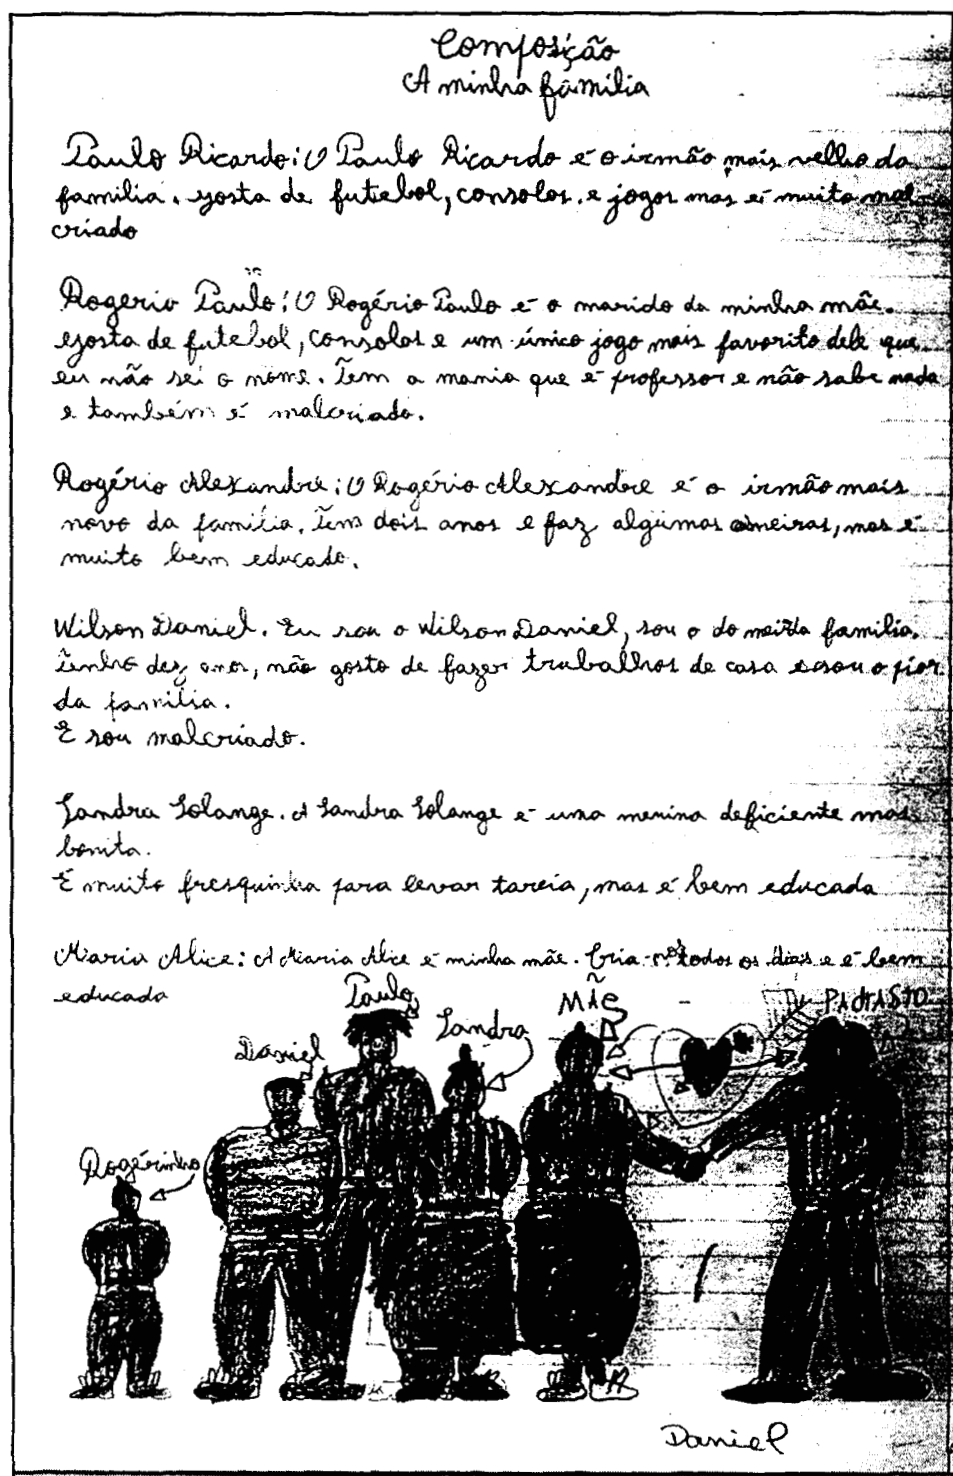 Composição
A minha família
Paulo Ricardo: O Paulo Ricardo é o irmão mais velho da
familia. gosta de futebol, consolas. e jogos mas é muito mal-
criado
Rogerio Paulo: O Rogério Paulo é o marido da minha mãe.
gosta de futebol, consolas e um único jogo mais favorito dele que
eu não sei o nome. Tem a mania que é professor e não sabe nada
e também é malcriado.
Rogério Alexandre: O Rogério Alexandre é o irmão mais
novo da família. Tem dois anos e faz algumas asneiras, mas é
muito bem educado.
Wilson Daniel. Eu sou o Wilson Daniel, sou o do meio da familia.
Tenho dez anos, não gosto de fazer trabalhos de casa e sou o pior
da familia.
E sou malcriado.
Sandra Solange. A Sandra Solange é uma menina deficiente mas
bonita.
É muito fresquinha para levar tareia, mas é bem educada
Maria Alice: A Maria Alice é minha mãe. Cria-nos todos os dias e é bem
educada
Paulo
Sandra
MÃE
PADRASTO
Daniel
Rogérinho
Daniel